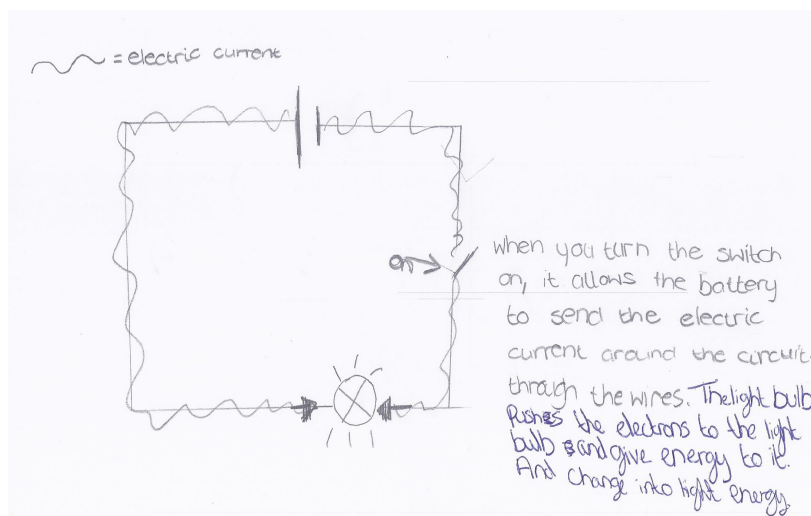 = electric current
on
when you turn the switch
on, it allows the battery
to send the electric
current around the circuit
through the wires. The light bulb
Pushes the electrons to the light
bulb and give energy to it.
And change into light energy.